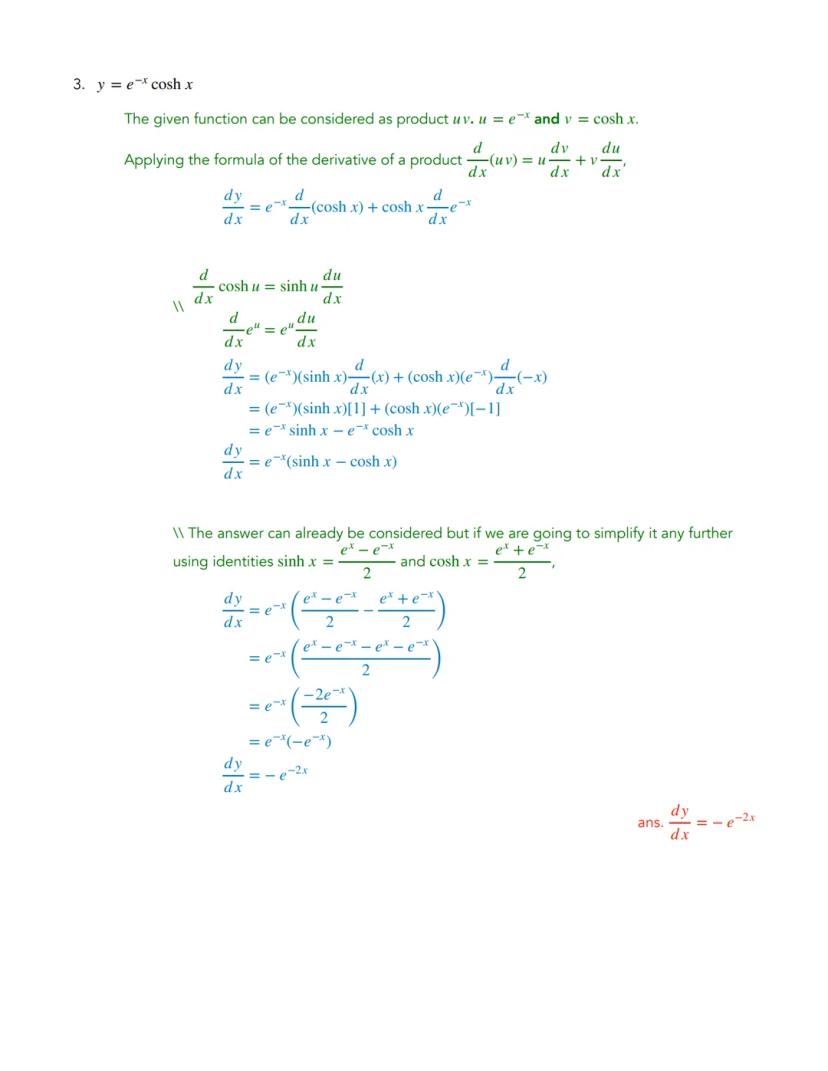 3. y = e⁻ˣ cosh x
The given function can be considered as product uv. u = e⁻ˣ and v = cosh x.
Applying the formula of the derivative of a product d/dx (uv) = u dv/dx + v du/dx,
dy/dx = e⁻ˣ d/dx (cosh x) + cosh x d/dx e⁻ˣ
\\ d/dx cosh u = sinh u du/dx
d/dx eᵘ = eᵘ du/dx
dy/dx = (e⁻ˣ)(sinh x) d/dx (x) + (cosh x)(e⁻ˣ) d/dx (−x)
= (e⁻ˣ)(sinh x)[1] + (cosh x)(e⁻ˣ)[−1]
= e⁻ˣ sinh x − e⁻ˣ cosh x
dy/dx = e⁻ˣ(sinh x − cosh x)
\\ The answer can already be considered but if we are going to simplify it any further
using identities sinh x = (eˣ − e⁻ˣ)/2 and cosh x = (eˣ + e⁻ˣ)/2,
dy/dx = e⁻ˣ ((eˣ − e⁻ˣ)/2 − (eˣ + e⁻ˣ)/2)
= e⁻ˣ ((eˣ − e⁻ˣ − eˣ − e⁻ˣ)/2)
= e⁻ˣ (−2e⁻ˣ/2)
= e⁻ˣ(−e⁻ˣ)
dy/dx = − e⁻²ˣ
ans. dy/dx = − e⁻²ˣ